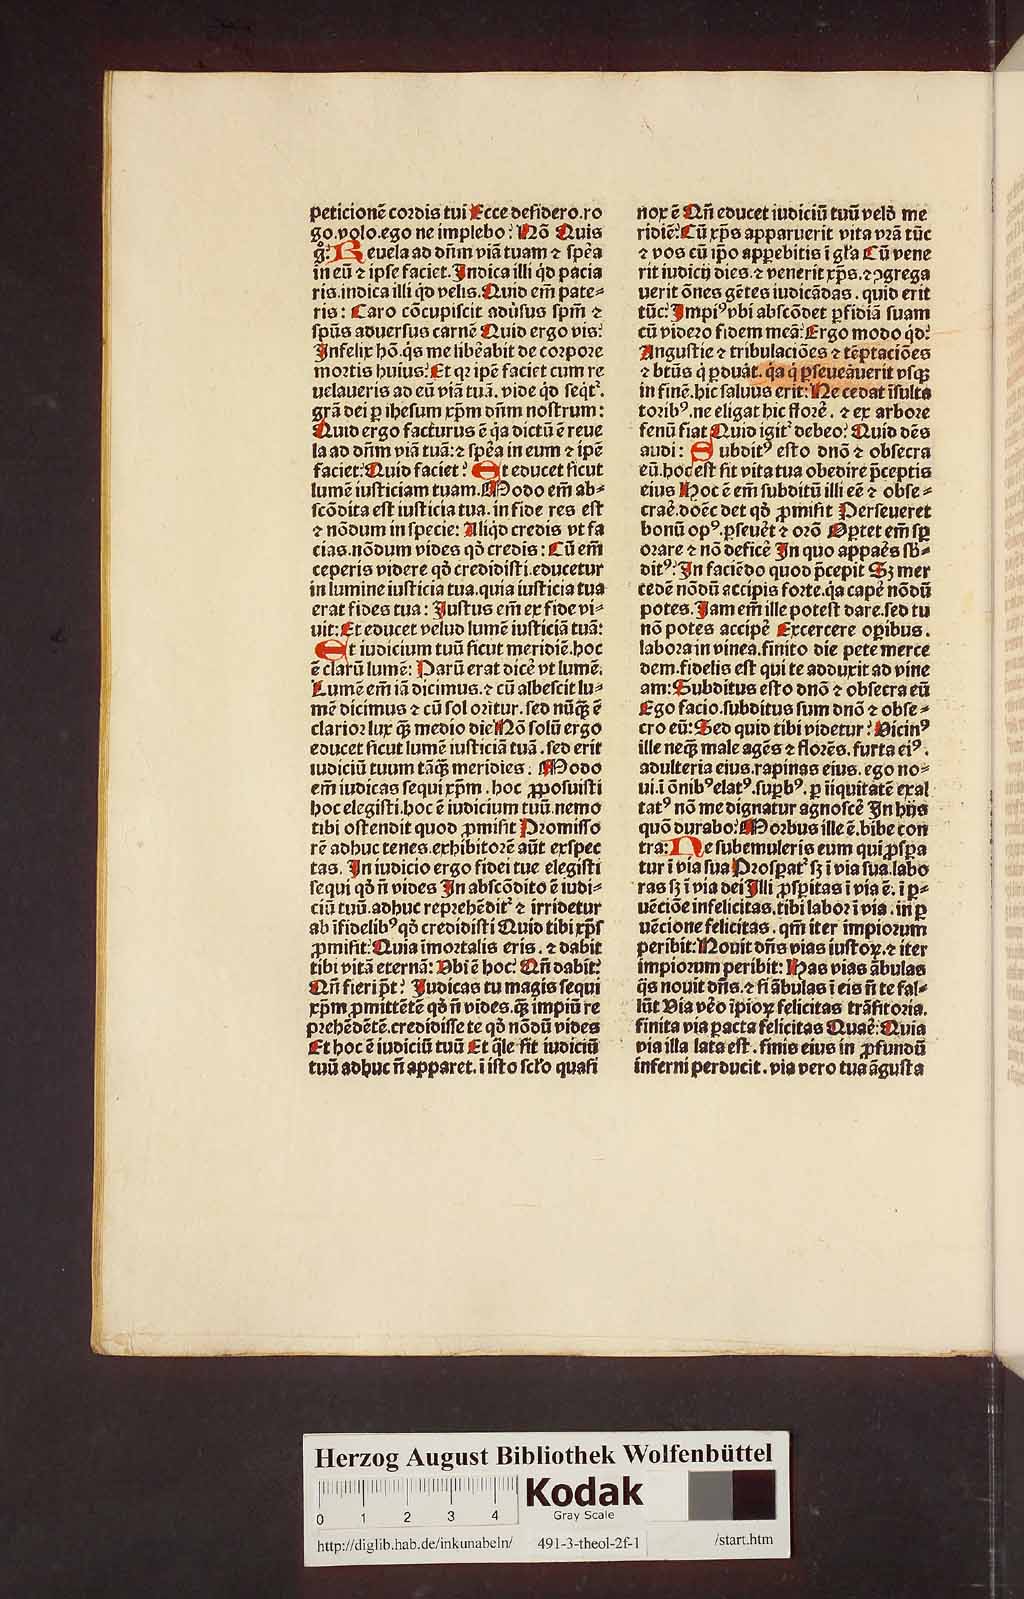 peticionē cordis tui Ecce desidero.ro
go.volo.ego ne implebo? Nō Quis
g̊? Reuela ad dn̄m viā tuam ⁊ sꝑa
in eū ⁊ ipse faciet. Indica illi qd̓ pacia
ris.indica illi qd̓ velis. Quid em̄ pate-
ris: Caro cōcupiscit adūsus spm̄ ⁊
spūs aduersus carnē Quid ergo vis?
Infelix hō.q̓s me libēabit de corpore
mortis huius? Et qꝛ ipē faciet cum re
uelaueris ad eū viā tuā. vide qd̓ seqt̄ᷣ.
grā dei ꝑ ihesum xp̄m dn̄m nostrum:
Quid ergo facturus ē q̓a dictū ē reue
la ad dn̄m viā tuā: ⁊ spēa in eum ⁊ ipē
faciet? Quid faciet? Et educet sicut
lumē iusticiam tuam. Modo em̄ ab-
scōdita est iusticia tua.in fide res est
⁊ nōdum in specie: Illiqd̓ credis vt fa
cias.nōdum vides qd̓ credis: Cū em̄
ceperis videre qd̓ credidisti.educetur
in lumine iusticia tua.quia iusticia tua
erat fides tua: Iustus em̄ ex fide vi-
uit: Et educet velud lumē iusticiā tuā:
Et iudicium tuū sicut meridiē.hoc
ē clarū lumē: Parū erat dicē vt lumē.
Lumē em̄ iā dicimus.⁊ cū albescit lu-
mē dicimus ⁊ cū sol oritur.sed nūq̄ ē
clarior lux q̄ medio die Nō solū ergo
educet sicut lumē iusticiā tuā.sed erit
iudiciū tuum tāq̄ meridies. Modo
em̄ iudicas sequi xp̄m.hoc ꝓposuisti
hoc elegisti.hoc ē iudicium tuū.nemo
tibi ostendit quod ꝓmisit Promisso
rē adhuc tenes.exhibitorē aūt expec
tas. In iudicio ergo fidei tue elegisti
sequi qd̓ n̄ vides In abscōdito ē iudi-
ciū tuū.adhuc reprehēditᷣ ⁊ irridetur
ab īfidelibꝰ qd̓ credidisti Quid tibi xp̄s
ꝓmisit: Quia īmortalis eris.⁊ dabit
tibi vitā eternā: Vbi ē hoc? Qn̄ dabit?
Qn̄ fieri pt̄? Iudicas tu magis sequi
xp̄m ꝓmittētē qd̓ n̄ vides.q̄ impiū re
prehēdētē.credidisse te qd̓ nōdū vides
Et hoc ē iudiciū tuū Et q̄le sit iudiciū
tuū adhuc n̄ apparet.ī isto sclo quasi
nox ē Qn̄ educet iudiciū tuū velđ me
ridiē? Cū xp̄s apparuerit vita vrā tūc
⁊ vos cū ipo appebitis ī gl̓a Cū vene
rit iudicij dies.⁊ venerit xp̄s.⁊ ꝯgrega
uerit ōnes gētes iudicādas.quid erit
tūc? Impiꝰ vbi abscōdet ꝑfidiā suam
cū videro fidem meā? Ergo modo qd̓?
Angustie ⁊ tribulaciōes ⁊ tēptaciōes
⁊ btūs q̓ ꝑduāt. q̓a q̓ ꝑseueāuerit vsqꝫ
in finē.hic saluus erit: Ne cedat īsulta
toribꝰ.ne eligat hic florē.⁊ ex arbore
fenū fiat Quid igitᷣ debeo? Quid dēs
audi: Subditꝰ esto dnō ⁊ obsecra
eū.hoc est sit vita tua obedire p̄ceptis
eius Hoc ē em̄ subditū illi eē ⁊ obse-
crāe.doēc det qd̓ ꝓmisit Perseueret
bonū opꝰ.ꝑseuēt ⁊ orō Oꝑtet em̄ sꝑ
orare ⁊ nō deficē In quo appaēs sb̄-
ditꝰ? In faciēdo quod p̄cepit Sꝫ mer
cedē nōdū accipis forte.q̓a capē nōdū
potes. Iam em̄ ille potest dare.sed tu
nō potes accipē Excercere opibus.
labora in vinea.finito die pete merce
dem.fidelis est qui te adduxit ad vine
am: Subditus esto dnō ⁊ obsecra eū
Ego facio.subditus sum dnō ⁊ obse-
cro eū: Sed quid tibi videtur? Vicinꝰ
ille neq̄ male agēs ⁊ florēs.furta eiꝰ.
adulteria eius.rapinas eius.ego no-
ui.ī ōnibꝰ elatꝰ.suꝑbꝰ.ꝑ īiquitatē exal
tatꝰ nō me dignatur agnoscē In hijs
quō durabo? Morbus ille ē.bibe con
tra: Ne subemuleris eum qui ꝓspa
tur ī via sua Prospatᷣ sꝫ ī via sua.labo
ras sꝫ ī via dei Illi ꝓspitas ī via ē.ī ꝑ-
uēciōe infelicitas.tibi labor ī via.in ꝑ
uēcione felicitas.qm̄ iter impiorum
peribit: Nouit dn̄s vias iustoꝝ.⁊ iter
impiorum peribit: Has vias ābulas
q̄s nouit dn̄s.⁊ si ābulas ī eis n̄ te fal-
lūt Via vēo īpioꝝ felicitas trāsitoria.
finita via ꝑacta felicitas Quaē? Quia
via illa lata est.finis eius in ꝓfundū
inferni perducit.via vero tua āgusta
Herzog August Bibliothek Wolfenbüttel
0 1 2 3 4
Kodak
Gray Scale
http://diglib.hab.de/inkunabeln/ 491-3-theol-2f-1 /start.htm